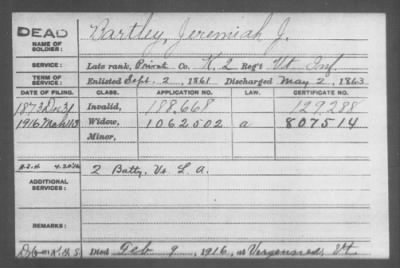 DEAD
NAME OF SOLDIER: Bartley, Jeremiah J.
SERVICE: Late rank, Privat Co. K, 2 Reg't Vt. Inf.
TERM OF SERVICE: Enlisted Sept. 2, 1861 Discharged May 2, 1863
DATE OF FILING. CLASS. APPLICATION NO. LAW. CERTIFICATE NO.
1873 Dec 31 Invalid, 188,668 129,288
1916 Mch 13 Widow, 1062502 a 807514
Minor,
ADDITIONAL SERVICES: 2 Batty. Vt. L. A.
REMARKS:
Died Feb 9, 1916, at Vergennes, Vt